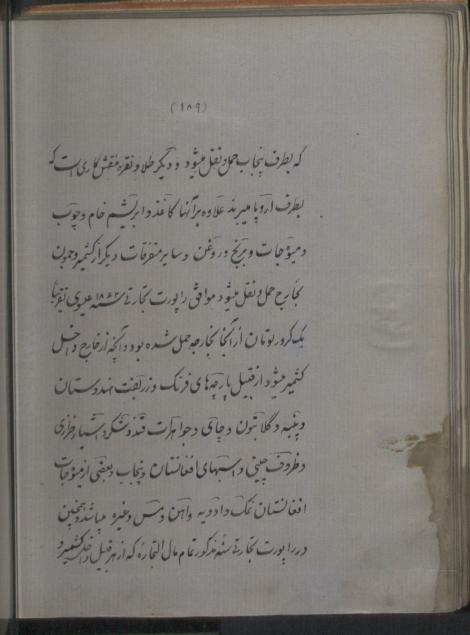 (۱۸۹)
که بطرف پنجاب حمل و نقل میشود و دیگر طلا و نقره منقش کاری است که
بطرف اروپا میبرند علاوه بر آنها کاغذ و ابریشم خام و چوب
و میوجات و برنج و روغن و سایر متفرقات دیگر از کشمیر و جمون
بخارج حمل و نقل میشود موافق راپورت تجارتی سنه عیسوی تقریبا
یک کرور تومان از آنجا بخارجه حمل شده بود و آنچه از خارج داخل
کشمیر میشود از قبیل پارچهای فرنگ و زربفت هندوستان
و پنبه و گلابتون و چای و جواهرات قند و شکر و اشیاء خرازی
و ظروف چینی و اسبهای افغانستان و پنجاب و بعضی از میوجات
افغانستان نمک و ادویه و آهن و مس و غیره میباشد و همچنین
در راپورت تجارتی سنه مذکور تمام مال التجاره که از هر قبیل داخل کشمیر